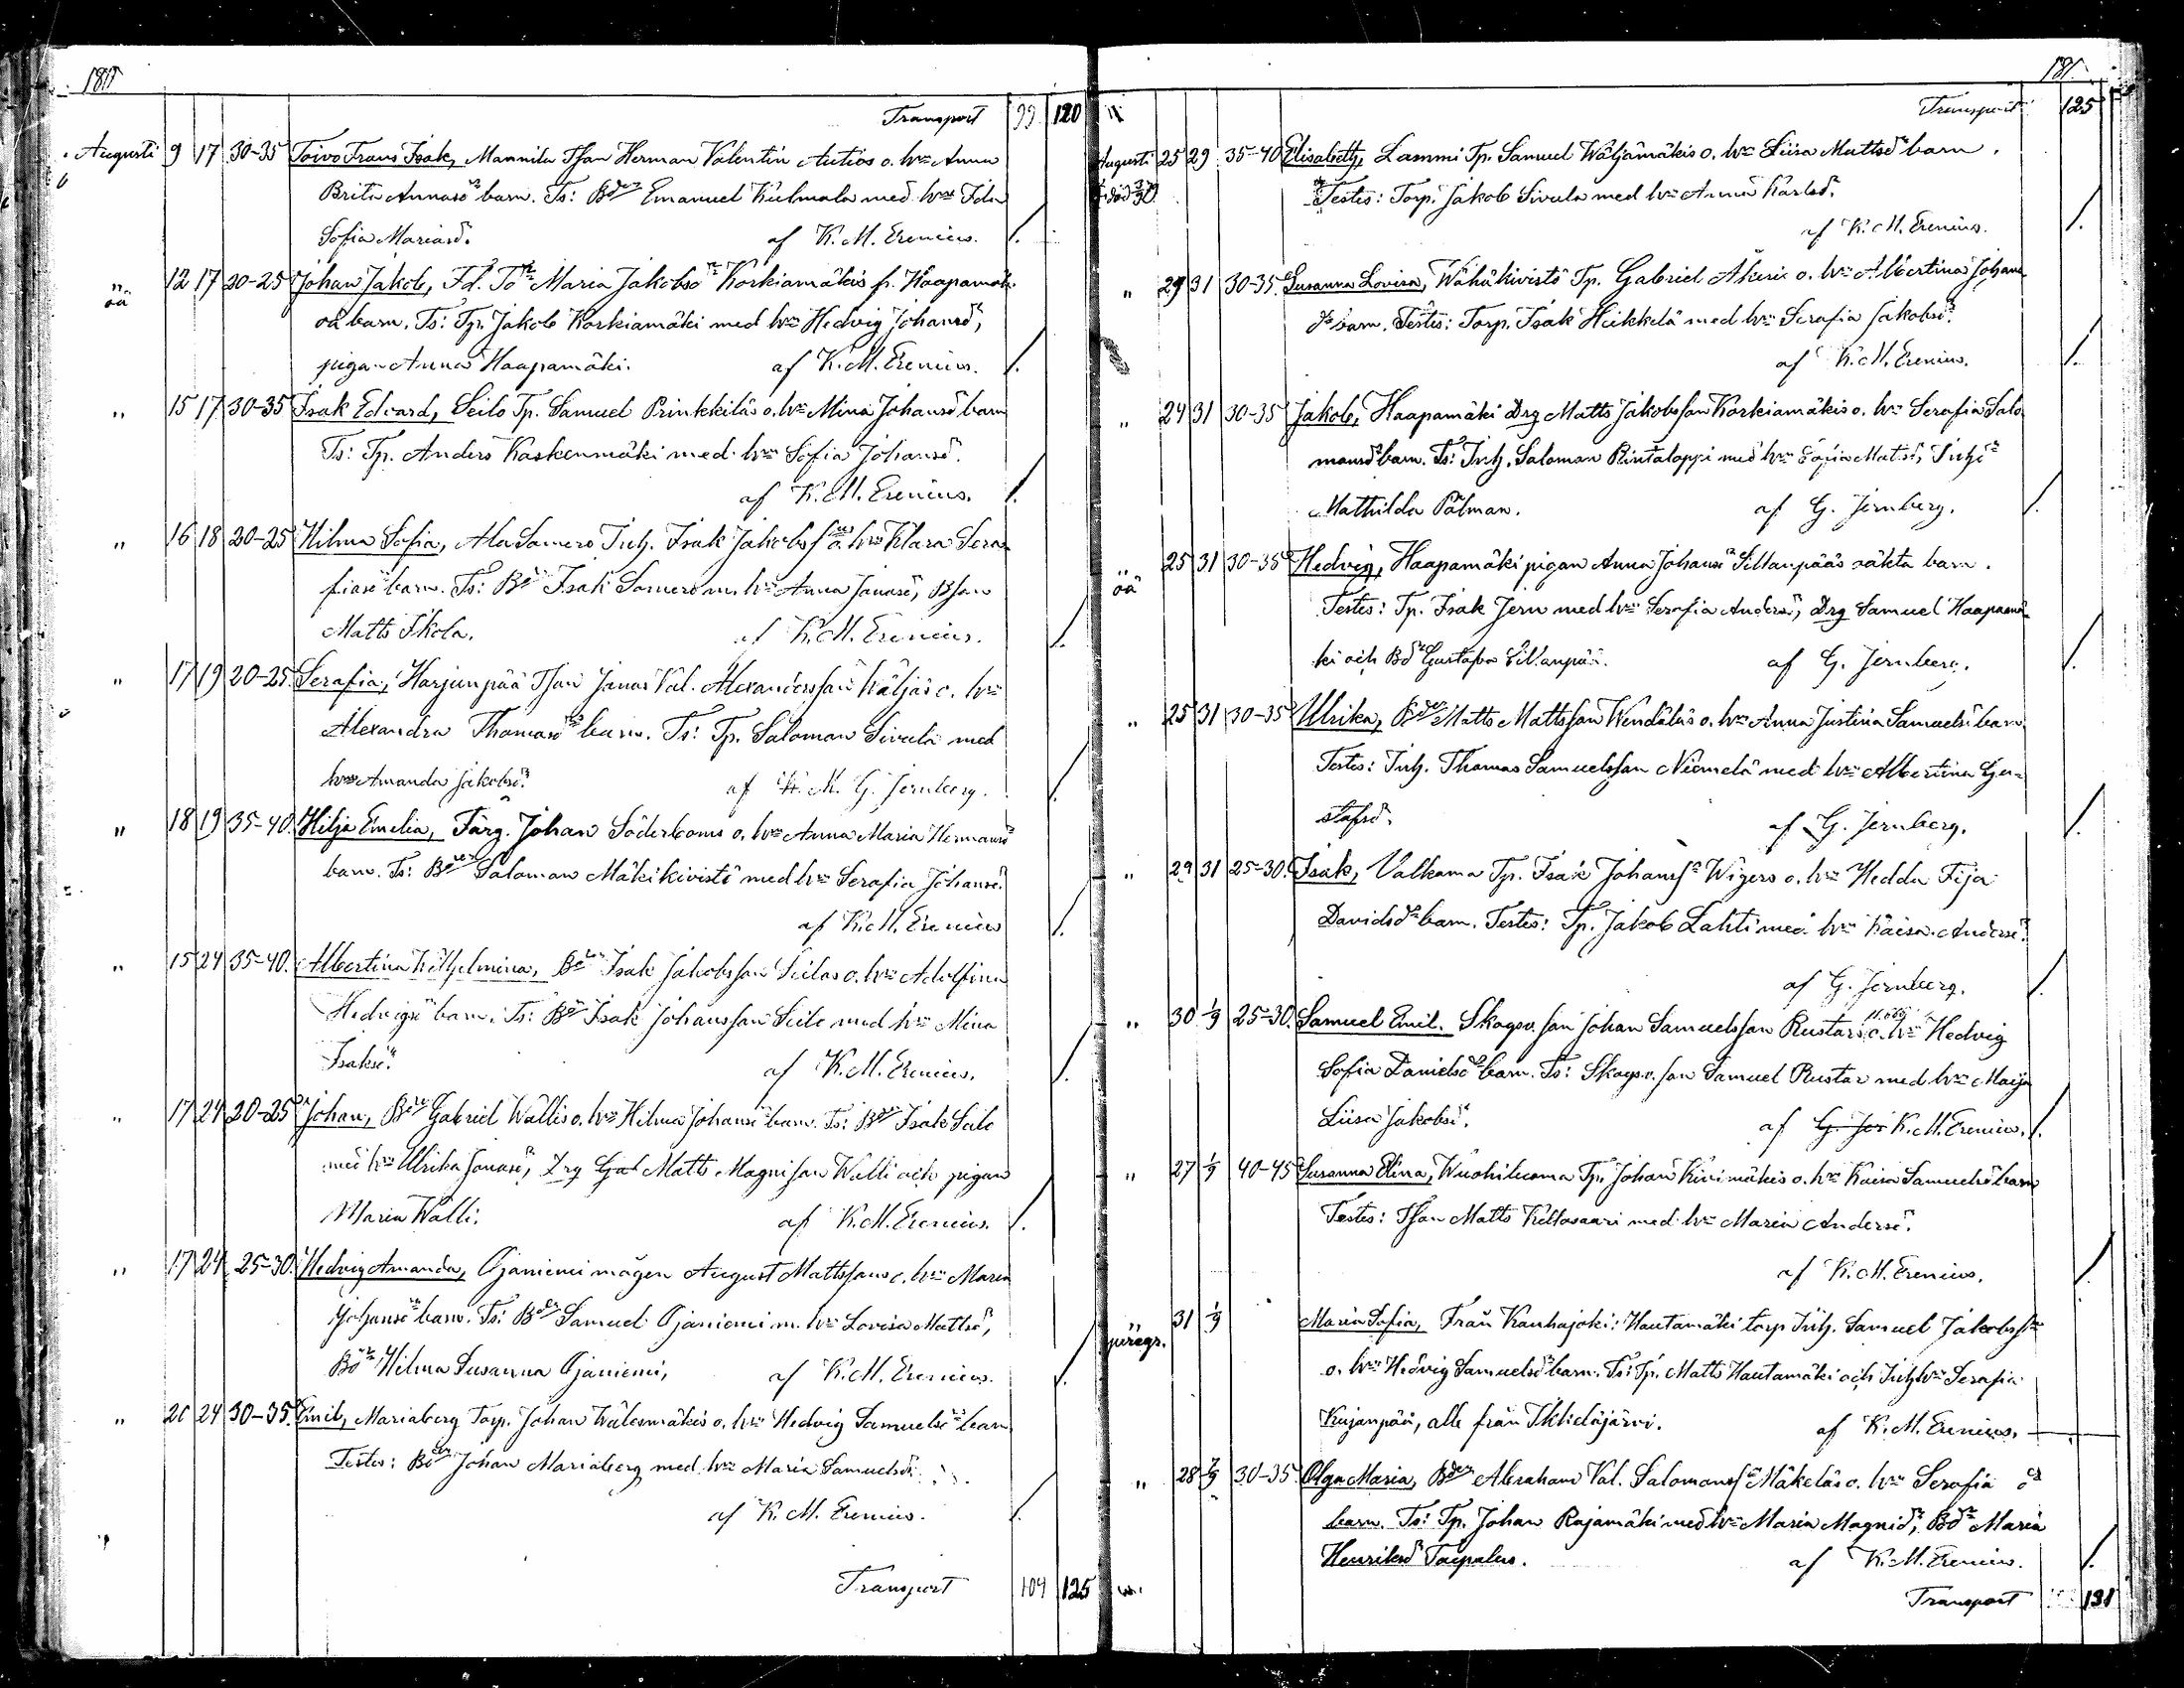 Transport 99 120
Augusti 9 17 30-35 Toivo Frans Isak, Mannila Tson Herman Valentin Antios o. hn Anna
Brita Annasdr barn. Ts: Bden Emanuel Kulmala med hn Ida
Sofia Mariasd. af K. M. Erenius.
" oä 12 17 20-25 Johan Jakob, Fd. To Maria Jakobsd Korkiamäkis fr. Haapamäki
oä barn. Ts: Tp. Jakob Korkiamäki med hn Hedvig Johansd,
pigan Anna Haapamäki. af K. M. Erenius.
" 15 17 30-35 Isak Edvard, Seilo Tp. Samuel Prinkkiläs o. hn Mina Johansd barn
Ts: Tp. Anders Kaskenmäki med hn Sofia Johansd.
af K. M. Erenius.
" 16 18 20-25 Hilma Sofia, Ala Samero Inh. Isak Jakobss o. hn Klara Sera-
fiasd barn. Ts: Bd Isak Somero m. hn Anna Jonasd, Bson
Matts Ikola. af K. M. Erenius.
" 17 19 20-25 Serafia, Harjunpää Tson Jonas Val. Alexandersson Wäljäs o. hn
Alexandra Thomasd barn. Ts: Tp. Salomon Sivula med
hn Amanda Jakobsd. af K. M. G. Jernberg.
" 18 19 35-40. Hilja Emelia, Färg. Johan Söderboms o. hn Anna Maria Hermansd
barn. Ts: Bden Salomon Mäkikivistö med hn Serafia Johansd.
af K. M. Erenius
" 15 24 35-40. Albertina Wilhelmina, Bden Isak Jakobsson Seilos o. hn Adolfina
Hedvigsd barn. Ts: Bd Isak Johansson Seilo med hn Mina
Isaksd. af K. M. Erenius.
" 17 24 20-25 Johan, Bden Gabriel Wallis o. hn Hilma Johansd barn. Ts: Bden Isak Seilo
med hn Ulrika Jonasd, Drg Gab Matts Magnisson Walli och pigan
Maria Walli. af K. M. Erenius.
" 17 24 25-30. Hedvig Amanda, Ojaniemi mågen August Mattssons o. hn Maria
Johansd barn. Ts: Bden Samuel Ojaniemi m. hn Lovisa Mattsd,
Bd Hilma Susanna Ojaniemi, af K. M. Erenius.
" 20 24 30-35. Emil, Mariaberg Torp. Johan Välesmäkis o. hn Hedvig Samuelsd barn
Testes: Bden Johan Mariaberg med hn Maria Samuelsd.
af K. M. Erenius.
Transport 104 125
181.
Transport 125
Augusti 25 29 35-40 Elisabeth, Lammi Tp. Samuel Wäljämäkis o. hn Liisa Mattsd barn.
död Testes: Torp. Jakob Sivula med hn Anna Karlsd.
af K. M. Erenius.
" 29 31 30-35. Susanna Lovisa, Wähäkivistö Tp. Gabriel Åkeris o. hn Albertina Johans
d barn. Testes: Torp. Isak Heikkelä med hn Serafia Jakobsd.
af K. M. Erenius.
" 24 31 30-35 Jakob, Haapamäki Drg Matts Jakobsson Korkiamäkis o. hn Serafia Salo
monsd barn. Ts: Inh. Salomon Rintaloppi med hn Sofia Matsd, Inh
Mathilda Pålman. af G. Jernberg.
" oä 25 31 30-35 Hedvig, Haapamäki pigan Anna Johansd Sillanpääs oäkta barn.
Testes: Tp. Isak Jern med hn Serafia Andersd, Drg Samuel Haapamä-
ki och Bd Gustafva Sillanpää. af G. Jernberg.
" 25 31 30-35 Ulrika, Bden Matts Mattsson Wendäläs o. hn Anna Justina Samuelsd barn
Testes: Inh. Thomas Samuelsson Niemelä med hn Albertina Gu-
stafsd. af G. Jernberg.
" 29 31 25-30. Isak, Valkama Tp. Isak Johanss Wigers o. hn Hedda Fija
Davidsd barn. Testes: Tp. Jakob Lahti med hn Kaisa Andersd.
af G. Jernberg.
" 30 1/9 25-30. Samuel Emil. Skogsv. son Johan Samuelsson Rustars o. hn Hedvig
Sofia Danielsd barn. Ts: Skogsv. son Samuel Rustar med hn Maija
Liisa Jakobsd. af G. Jer K. M. Erenius.
" 27 1/9 40-45 Susanna Elina, Wuohiluoma Tp. Johan Kivimäkis o. hn Kaisa Samuelsd barn
Testes: Tson Matts Kettosaari med hn Maria Andersd.
af K. M. Erenius.
31 1/9 Maria Sofia, Från Kauhajoki: Hautamäki torp Inh. Samuel Jakobss
o. hn Hedvig Samuelsd barn. Ts: Tp. Matts Hautamäki och Inh hn Serafia
Kujanpää, alla från Ikkeläjärvi. af K. M. Erenius.
" 28 2/9 30-35 Olga Maria, Bden Abraham Val. Salomonss Mäkeläs o. hn Serafia
barn. Ts: Tp. Johan Rajamäki med hn Maria Magnid, Bd Maria
Henriksd Taipalus. af K. M. Erenius.
Transport 131